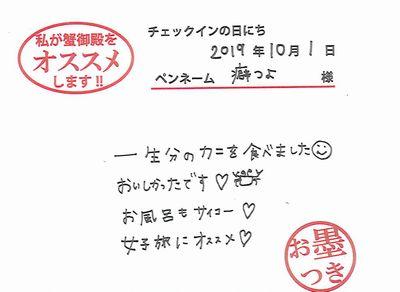 私が蟹御殿を
オススメ
します!!
チェックインの日にち
2019年10月1日
ペンネーム 癖つよ 様
一生分のカニを食べました☺
おいしかったです♡
お風呂もサイコー♡
女子旅にオススメ♡
お墨
つき